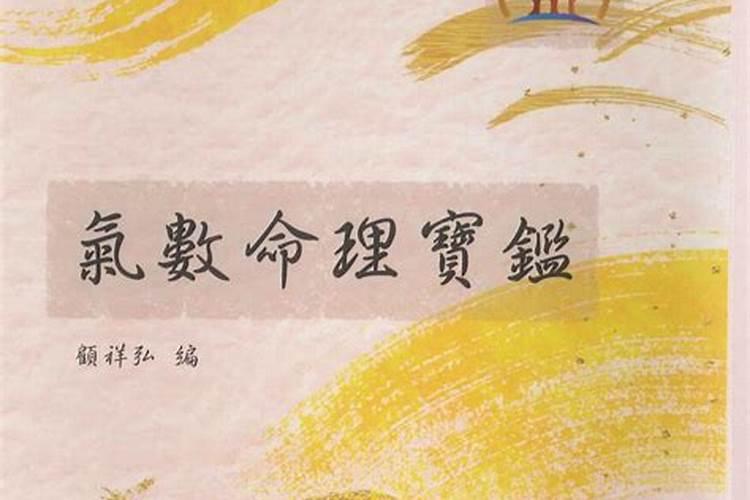 氣數命理寶鑑
顧祥弘 編